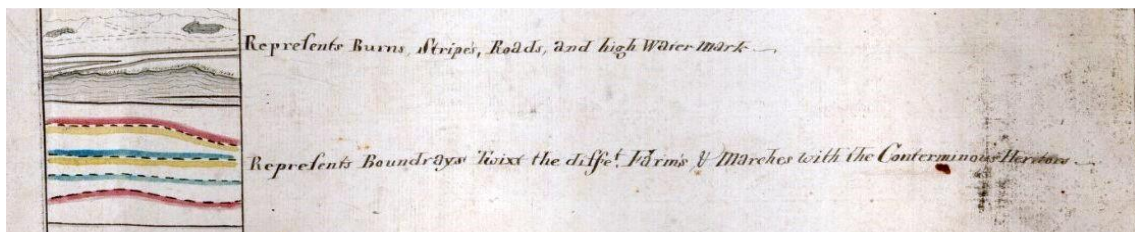 Repreſents Burns, Stripes, Roads, and high Water mark
Repreſents Boundrays Twixt the diffet. Farms & Marches with the Conterminous Heritors